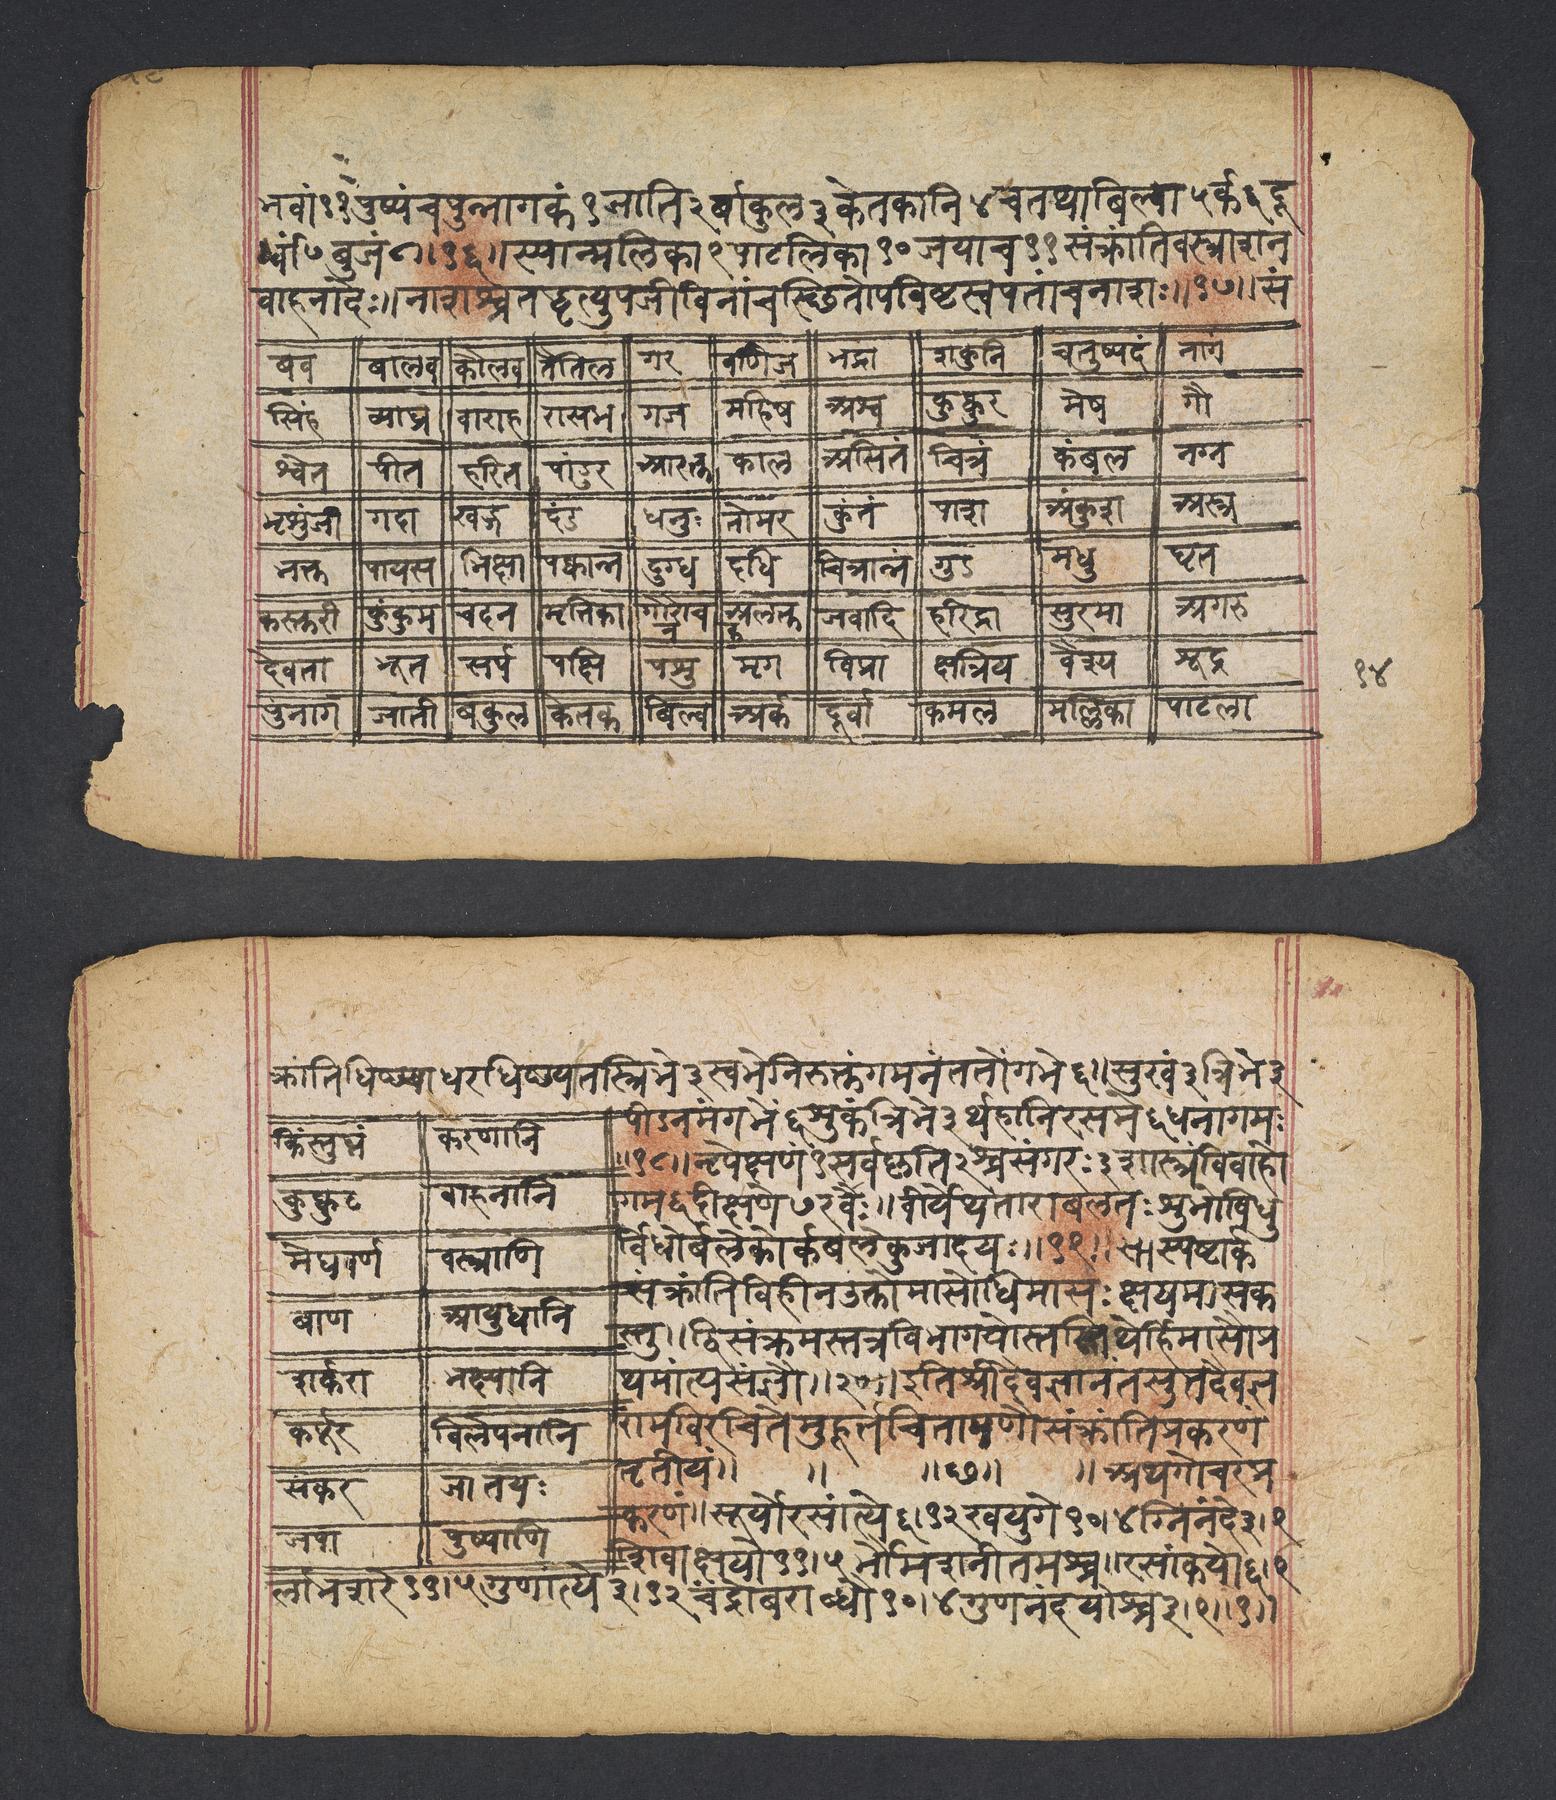 भवां ११ पुष्पं च पुन्नागकं १ जाति २ र्बाकुल ३ केतकानि ४ च तथा बिल्वा ५ र्क ६ दू
र्वां ७ बुजं ८॥१६॥ स्यान्मल्लिका ९ पाटलिका १० जपा च ११ संक्रांतिवस्त्राशन
वाहनादेः॥ नाशश्च तद्वृत्युपजीविनां च स्छितोपविष्टस्वपतां च नाशः॥१७॥ सं
बव बालव कौलव तैतिल गर वणिज भद्रा शकुनि चतुष्पदं नागं
सिंह व्याघ्र वाराह रासभ गज महिष अश्व कुक्कुर मेष गौ
श्वेत पीत हरित पांडुर आरक्त काल असितं चित्रं कंबल नग्न
भृसुंजी गदा खड्ग दंड धनुः तोमर कुंतं पाश अंकुश अस्त्र
भक्त पायस भिक्षा पक्वान्न दुग्ध दधि चित्रान्नं गुड मधु घृत
कस्तूरी कुंकुम चंदन मृत्तिका गोरोचन अलक्त जवादि हरिद्रा सुरमा अगरु
देवता भूत सर्प पक्षि पसु मृग विप्रा क्षत्रिय वैश्य शूद्र
पुनाग जाती बकुल केतक बिल्व अर्क दूर्वा कमल मल्लिका पाटला
१४
क्रांतिधिष्ण्याधरधिष्ण्यतस्त्रिभे ३ स्वभे निरुक्तं गमनं ततोंगभे ६॥ सुखं ३ त्रिभे ३
पीडनमंगभे ६ शुकं त्रिभे ३ र्थहानि रसभे ६ धनागमः
॥१८॥ नृपेक्षणं १ सर्वकृति २ श्च संगरः ३ शास्त्रं विवाहो
गम ६ दीक्षणे ७ रवेः॥ वीर्येथ ताराबलतः शुभो विधु
र्विधोर्बलेर्कोर्कबले कुजादयः॥१९॥ स्पष्टार्क
संक्रांतिविहीन उक्तो मासोधिमासः क्षयमासक
स्तु॥ द्विसंक्रमस्तत्र विभागयोस्तस्तिथेर्हि मासौ प्र
थमांत्यसंज्ञौ॥२०॥ इति श्रीदैवज्ञानंतसुतदैवज्ञ
रामविरचिते मुहूर्तचिंतामणौ संक्रांतिप्रकरणं
तृतीयं॥ ॥ ॥छ॥ ॥ अथ गोचरप्र
करणं॥ सूर्यो रसांत्ये ६।१२ खयुगे १०।४ ग्निनंदे ३।९
शिवाक्षयो ११।५ र्भौमशनी तमश्च॥ रसांकयो ६।९
र्लाभशरे ११।५ गुणांत्ये ३।१२ चंद्रोंबराब्धौ १०।४ गुणनंदयोश्च ३।९॥१॥
किंस्तुघ्नं करणानि
कुक्कुट वाहनानि
मेघवर्ण वस्त्राणि
बाण आयुधानि
शर्करा भक्ष्यानि
कर्पूर विलेपनानि
संकर जातयः
जपा पुष्पाणि